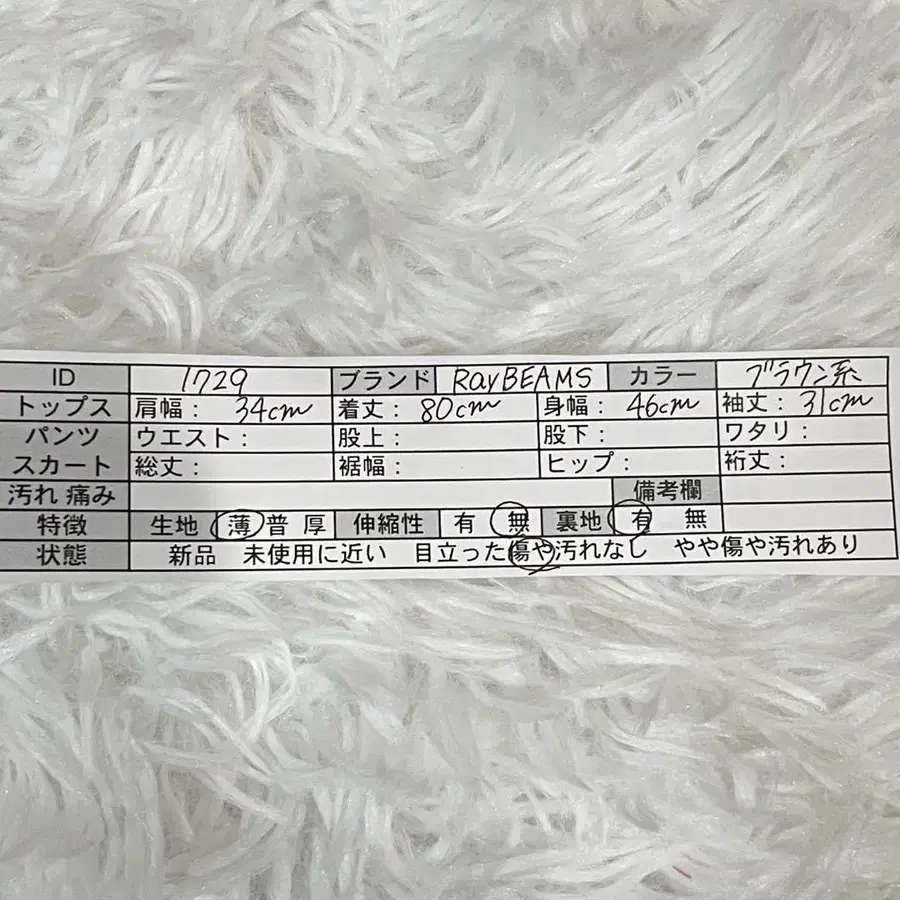 ID 1729 ブランド RayBEAMS カラー ブラウン系
トップス 肩幅： 34cm 着丈： 80cm 身幅： 46cm 袖丈： 31cm
パンツ ウエスト： 股上： 股下： ワタリ：
スカート 総丈： 裾幅： ヒップ： 裄丈：
汚れ 痛み 備考欄
特徴 生地 薄 普 厚 伸縮性 有 無 裏地 有 無
状態 新品 未使用に近い 目立った傷や汚れなし やや傷や汚れあり